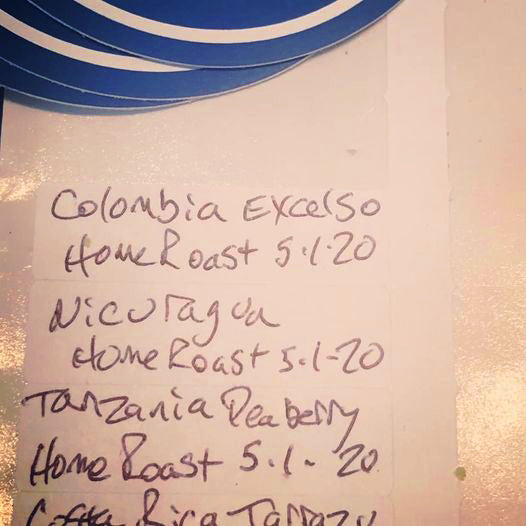 Colombia Excelso
Home Roast 5.1.20
Nicuragua
Home Roast 5.1-20
Tanzania Peaberry
Home Roast 5.1-20
Costa Rica Tarrazu